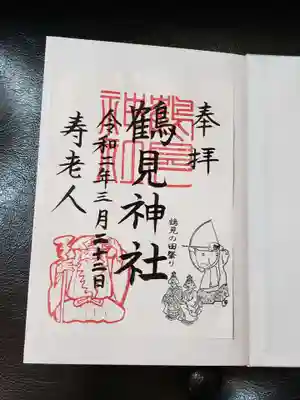 奉拝
鶴見神社
鶴見の田祭り
令和二年三月二十二日
寿老人